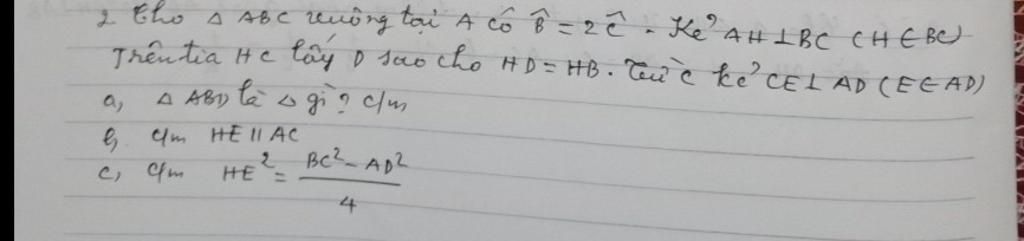 2. Cho Δ ABC vuông tại A có B̂ = 2Ĉ. Kẻ AH⊥BC (H∈BC)
Trên tia HC lấy D sao cho HD = HB. Từ C kẻ CE⊥AD (E∈AD)
a, Δ ABD là Δ gì? c/m
b, c/m HE // AC
c, c/m HE² = (BC² - AD²)/4